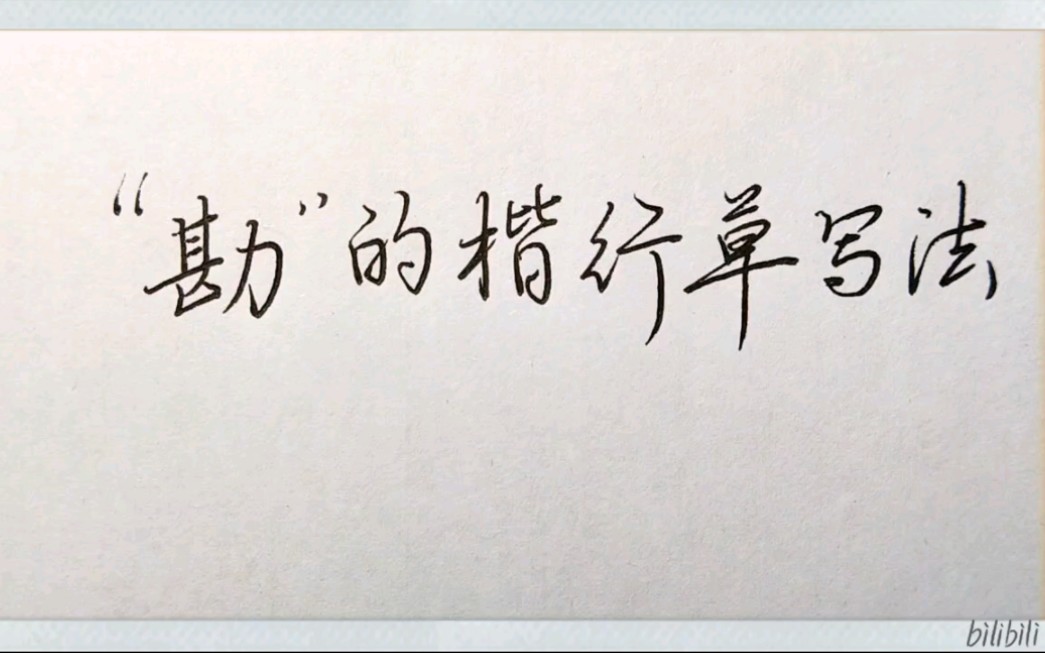 “勘”的楷行草写法
bilibili